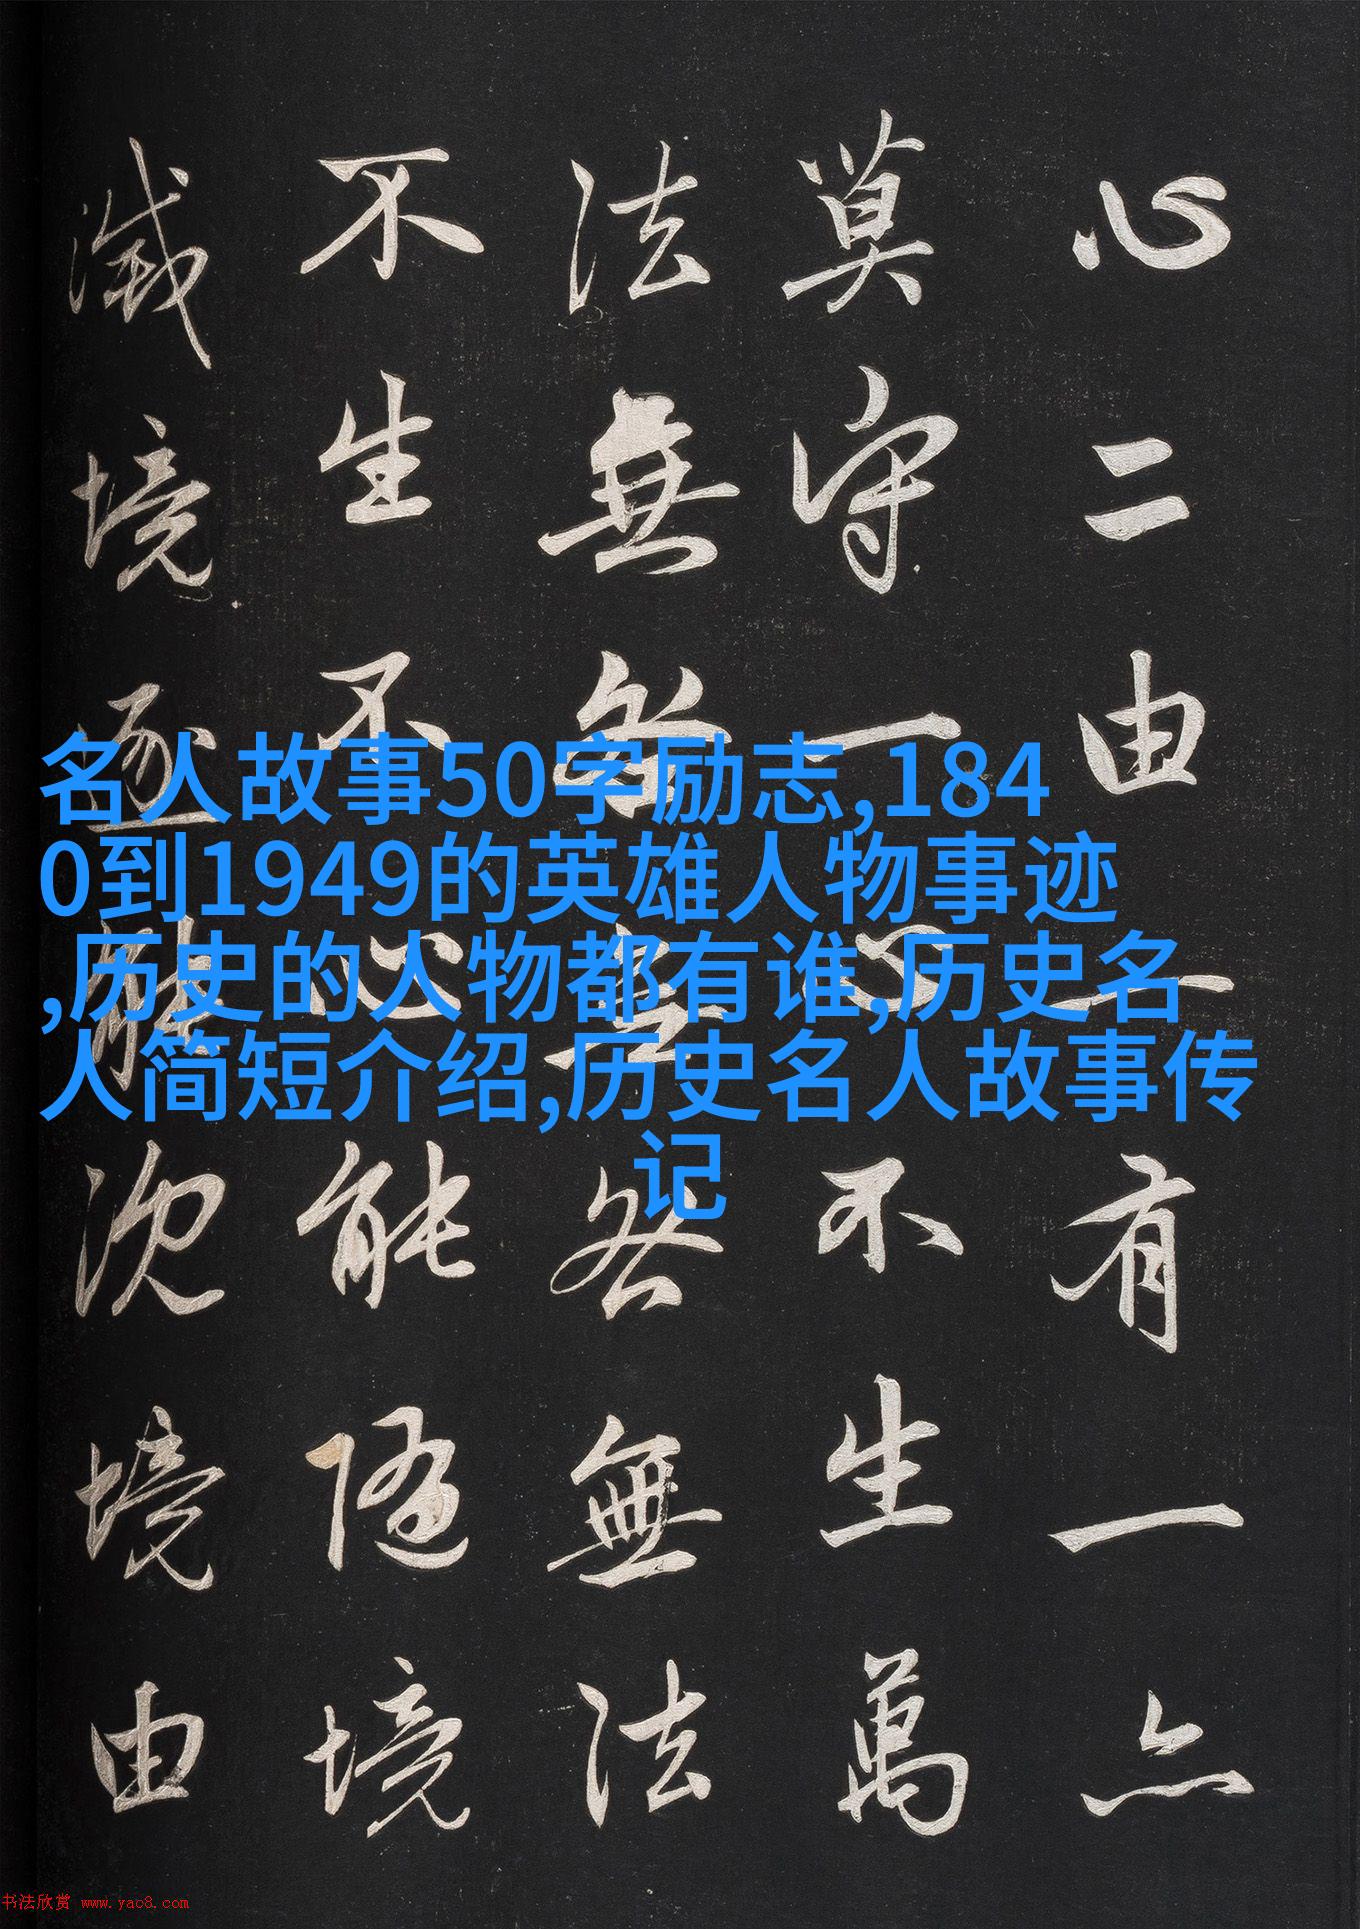 心二由一有一亦
莫守一心不生萬
法無咎無咎無法
不生不心能隨境
滅境逐能沉境由
名人故事50字励志,184
0到1949的英雄人物事迹
,历史的人物都有谁,历史名
人简短介绍,历史名人故事传
记
书法欣赏 www.yac8.com